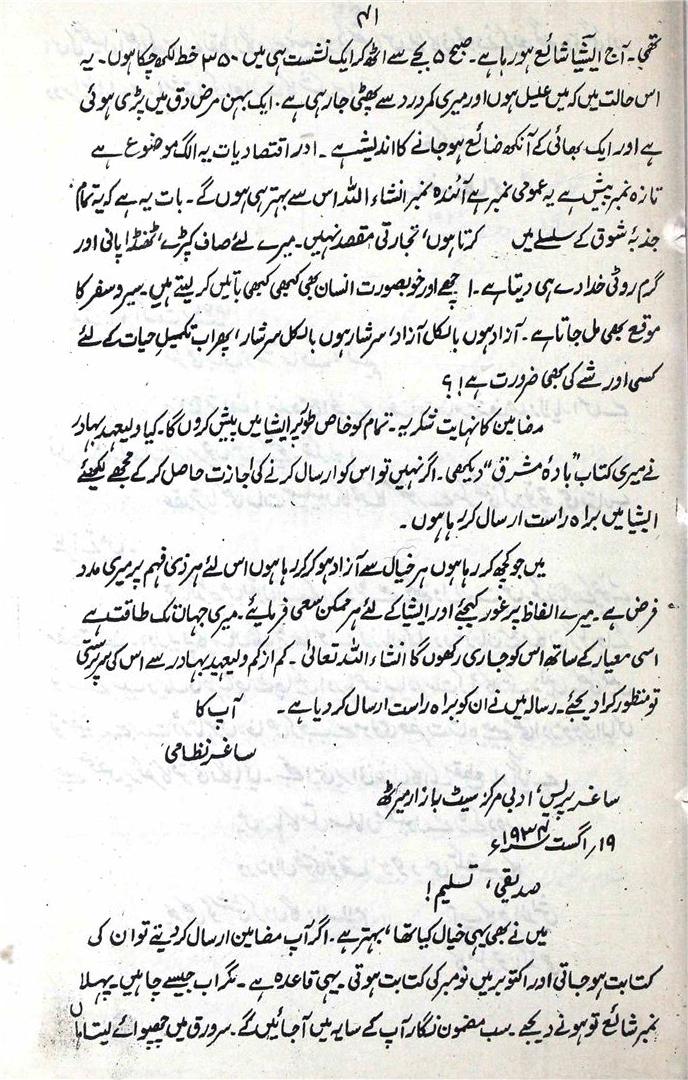 ۴۱
تھی۔ آج ایشیا شائع ہو رہا ہے۔ صبح ۵ بجے سے اٹھ کر ایک نشست ہی میں ۳۵۰ خط لکھ چکا ہوں۔ یہ
اس حالت میں کہ میں علیل ہوں اور میری کمر درد سے پھٹی جا رہی ہے۔ ایک بہن مرض دق میں پڑی ہوئی
ہے اور ایک بھائی کے آنکھ ضائع ہو جانے کا اندیشہ ہے۔ اور اقتصادیات یہ الگ موضوع ہے
تازہ نمبر پیش ہے یہ عمومی نمبر ہے آئندہ نمبر انشاء اللہ اس سے بہتر ہی ہوں گے۔ بات یہ ہے کہ یہ تمام
جذبۂ شوق کے سلسلے میں کرتا ہوں، تجارتی مقصد نہیں۔ میرے لئے صاف کپڑے، ٹھنڈا پانی اور
گرم روٹی خدا دے ہی دیتا ہے۔ اچھے اور خوبصورت انسان بھی کبھی کبھی باتیں کر لیتے ہیں۔ سیر و سفر کا
موقع بھی مل جاتا ہے۔ آزاد ہوں بالکل آزاد، سرشار ہوں بالکل سرشار، پھر اب تکمیلِ حیات کے لئے
کسی اور شے کی بھی ضرورت ہے!؟
مضامین کا نہایت شکریہ۔ تمام کو خاص طور پر ایشیا میں پیش کروں گا۔ کیا ولیعہد بہادر
نے میری کتاب "بادۂ مشرق" دیکھی۔ اگر نہیں تو اس کو ارسال کرنے کی اجازت حاصل کر کے مجھے لکھئے
ایشیا میں براہ راست ارسال کر رہا ہوں۔
میں جو کچھ کر رہا ہوں ہر خیال سے آزاد ہو کر کر رہا ہوں اس لئے ہر ذی فہم پر میری مدد
فرض ہے۔ میرے الفاظ پر غور کیجئے اور ایشیا کے لئے ہر ممکن سعی فرمایئے۔ میری جہاں تک طاقت ہے
اسی معیار کے ساتھ اس کو جاری رکھوں گا انشاء اللہ تعالیٰ۔ کم از کم ولیعہد بہادر سے اس کی سرپرستی
تو منظور کرا دیجئے۔ رسالہ میں نے ان کو براہ راست ارسال کر دیا ہے۔ آپ کا
ساغر نظامی
ساغر پریس، ادبی مرکز سیٹ بازار میرٹھ
۱۹؍ اگست ۱۹۳۴ء
صدیقی، تسلیم!
میں نے بھی یہی خیال کیا تھا، بہتر ہے۔ اگر آپ مضامین ارسال کر دیتے تو ان کی
کتابت ہو جاتی اور اکتوبر میں نومبر کی کتابت ہوتی۔ یہی قاعدہ ہے۔ مگر اب جیسے چاہیں۔ پہلا
نمبر شائع تو ہونے دیجئے۔ سب مضمون نگار آپ کے سایہ میں آ جائیں گے۔ سرورق میں چھپوائے لیتا ہوں